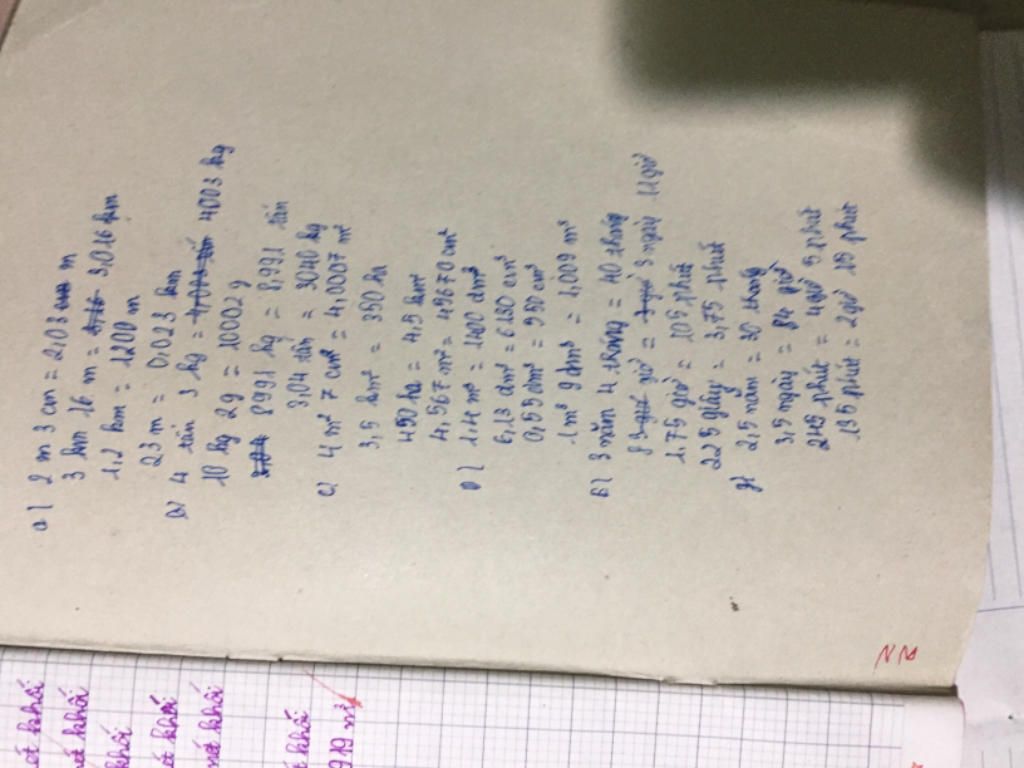 a) 2 m 3 cm = 2,03 m
3 km 16 m = 3,016 km
1,2 km = 1200 m
23 m = 0,023 km
b) 4 tấn 3 kg = 4003 kg
10 kg 2g = 10002 g
8991 kg = 8,991 tấn
3,04 tấn = 3040 kg
c) 4 m² 7 cm² = 4,0007 m²
3,5 km² = 350 ha
450 ha = 4,5 km²
4,567 m² = 45670 cm²
1,4 m³ = 1400 dm³
6,13 dm³ = 6130 cm³
0,55 dm³ = 550 cm³
1 m³ 9 dm³ = 1,009 m³
3 năm 4 tháng = 40 tháng
83 giờ = 3 ngày 11 giờ
1,75 giờ = 105 phút
225 giây = 3,75 phút
g) 2,5 năm = 30 tháng
3,5 ngày = 84 giờ
245 phút = 4 giờ 5 phút
135 phút = 2 giờ 15 phút
khối
mét khối
khối
khối
mét khối
khối
919 m³